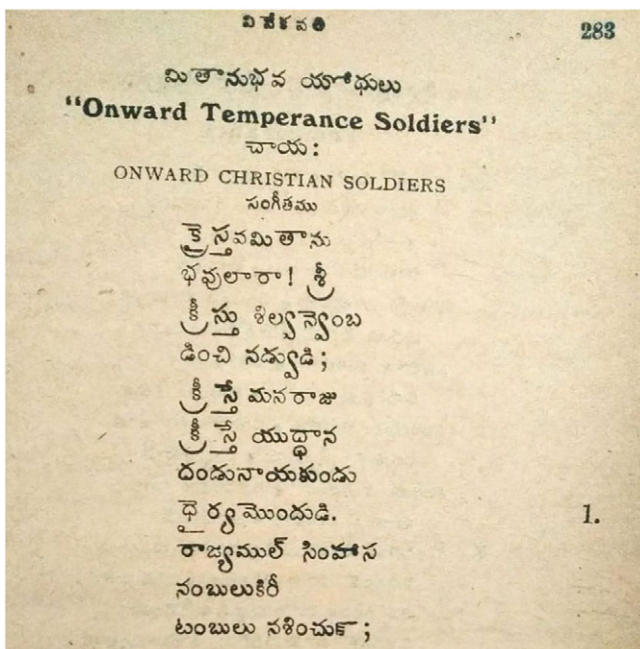 వివేకవతి 283
మితానుభవ యోధులు
“Onward Temperance Soldiers”
చాయ:
ONWARD CHRISTIAN SOLDIERS
సంగీతము
క్రైస్తవమితాను
భవులారా! శ్రీ
క్రీస్తు శిల్వన్వెంబ
డించి నడ్వుడి;
క్రీస్తే మనరాజు
క్రీస్తే యుద్ధాన
దండునాయకుండు
ధైర్యమొందుడి. 1.
రాజ్యముల్ సింహాస
నంబులుకిరీ
టంబులు నశించుఁ;